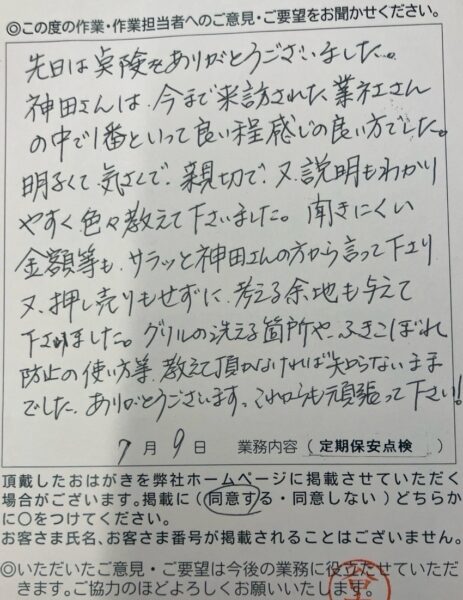 ◎この度の作業・作業担当者へのご意見・ご要望をお聞かせください。
先日は点険をありがとうございました。
神田さんは、今まで来訪された業社さん
の中で1番といって良い程感じの良い方でした。
明るくて、気さくで、親切で、又、説明もわかり
やすく色々教えて下さいました。聞きにくい
金額等も、サラッと神田さんの方から言って下さり
又、押し売りもせずに、考える余地も与えて
下さいました。グリルの洗える箇所や、ふきこぼれ
防止の使い方等、教えて頂かなければ知らないまま
でした。ありがとうございます、これからも頑張って下さい!
7月9日 業務内容(定期保安点検)
頂戴したおはがきを弊社ホームページに掲載させていただく
場合がございます。掲載に(同意する・同意しない)どちらか
に○をつけてください。
お客さま氏名、お客さま番号が掲載されることはございません。
◎いただいたご意見・ご要望は今後の業務に役立たせていただ
きます。ご協力のほどよろしくお願いいたします。